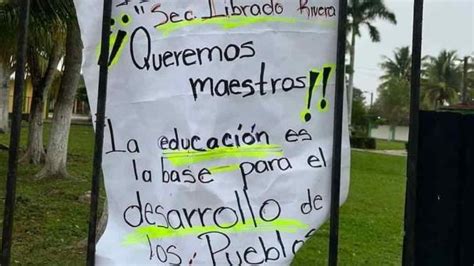 ¡¡Sec. Librado Rivera
¡¡Queremos
maestros!!
La educación es
la base para el
desarrollo de
los Pueblos